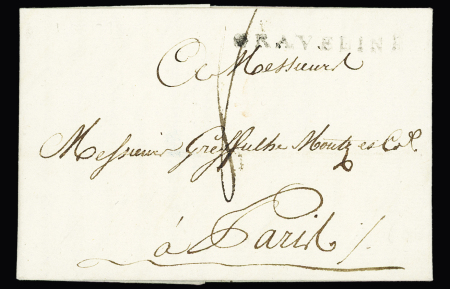 GRAVELINE
A Messieurs
Messieurs Greffulhe Montz et Co.
8
à Paris